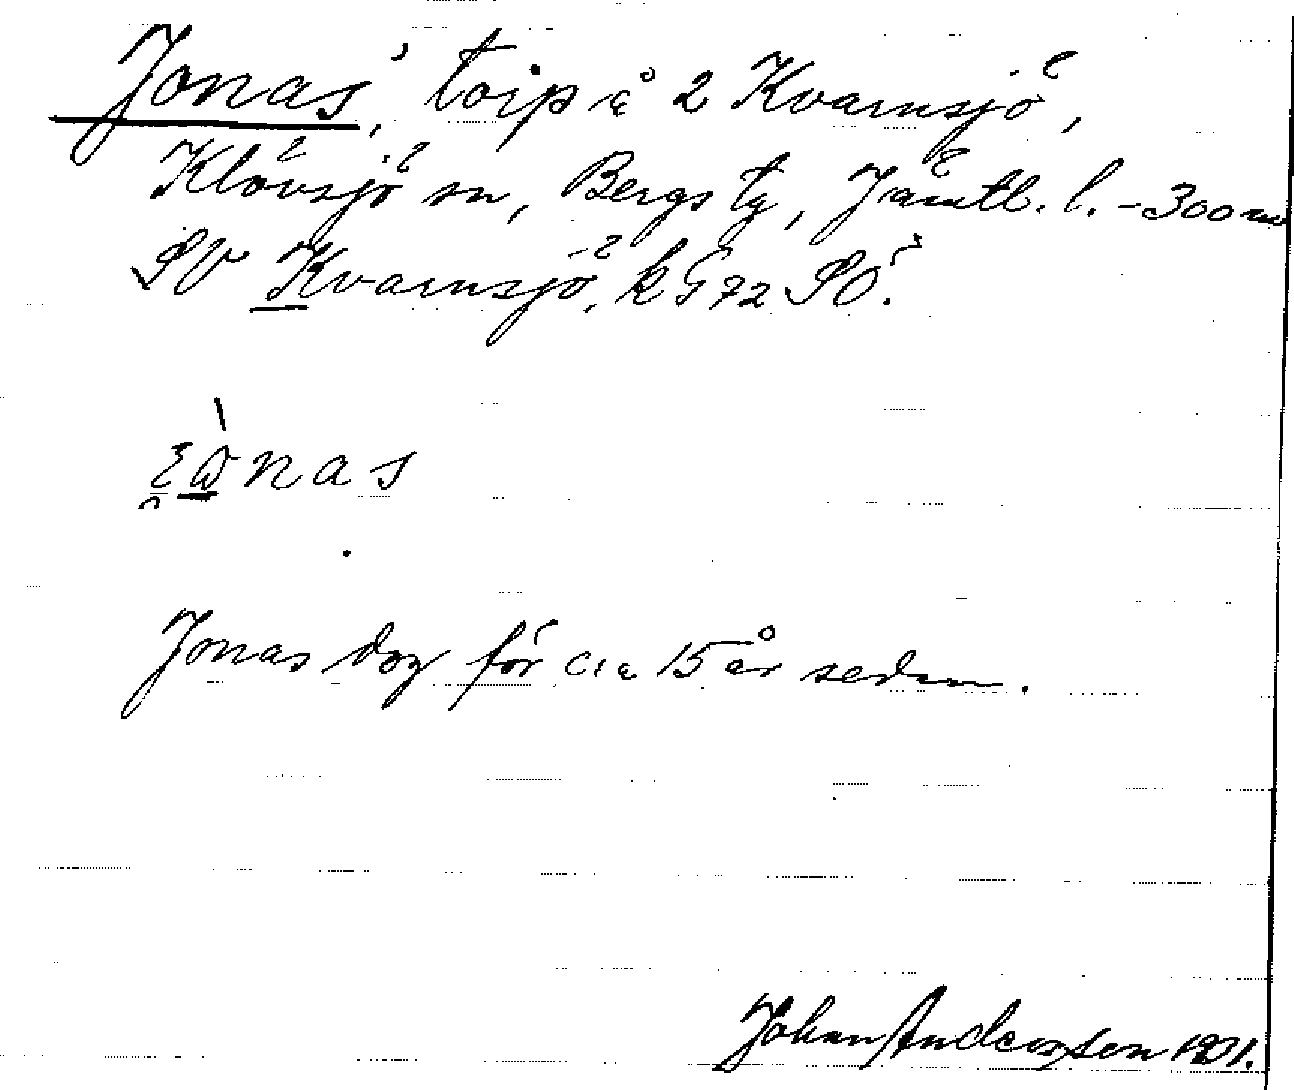 Jonas', torp å 2 Kvarnsjö,
Klövsjö sn, Bergs tg, Jämtl. l. - 300 m
SV Kvarnsjö, k G 72 SÖ.
nas
Jonas dog för c:a 15 år sedan.
Johan Andersson 1931.